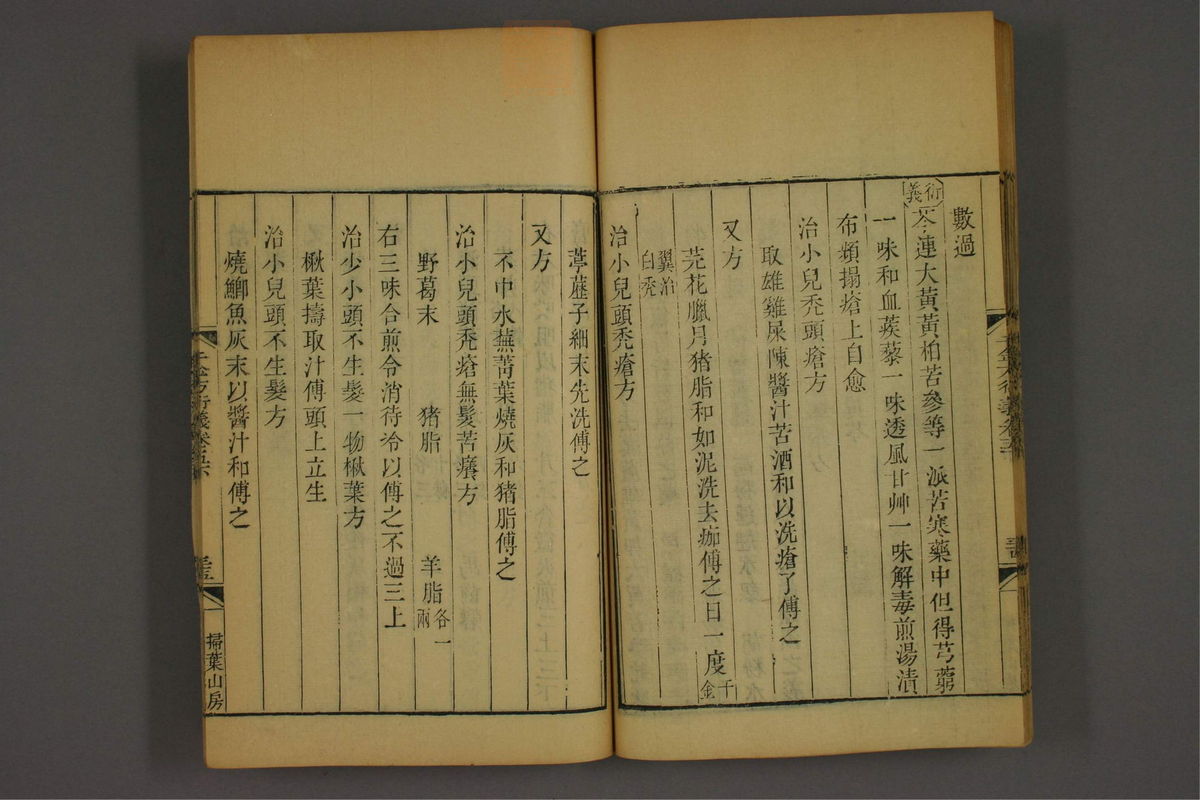 數過
衍義
芩連大黃黃柏苦參等一派苦寒藥中但得芎藭
一味和血蒺藜一味透風甘艸一味解毒煎湯漬
布頻搨瘡上自愈
治小兒禿頭瘡方
取雄雞屎陳醬汁苦酒和以洗瘡了傅之
又方
芫花臘月猪脂和如泥洗去痂傅之日一度千金
翼治白禿
治小兒頭禿瘡方
葶藶子細末先洗傅之
又方
不中水蕪菁葉燒灰和猪脂傅之
治小兒頭禿瘡無髮苦癢方
野葛末 猪脂 羊脂各一兩
右三味合煎令消待冷以傅之不過三上
治少小頭不生髮一物楸葉方
楸葉擣取汁傅頭上立生
治小兒頭不生髮方
燒鯽魚灰末以醬汁和傅之
千金方衍義卷五
掃葉山房